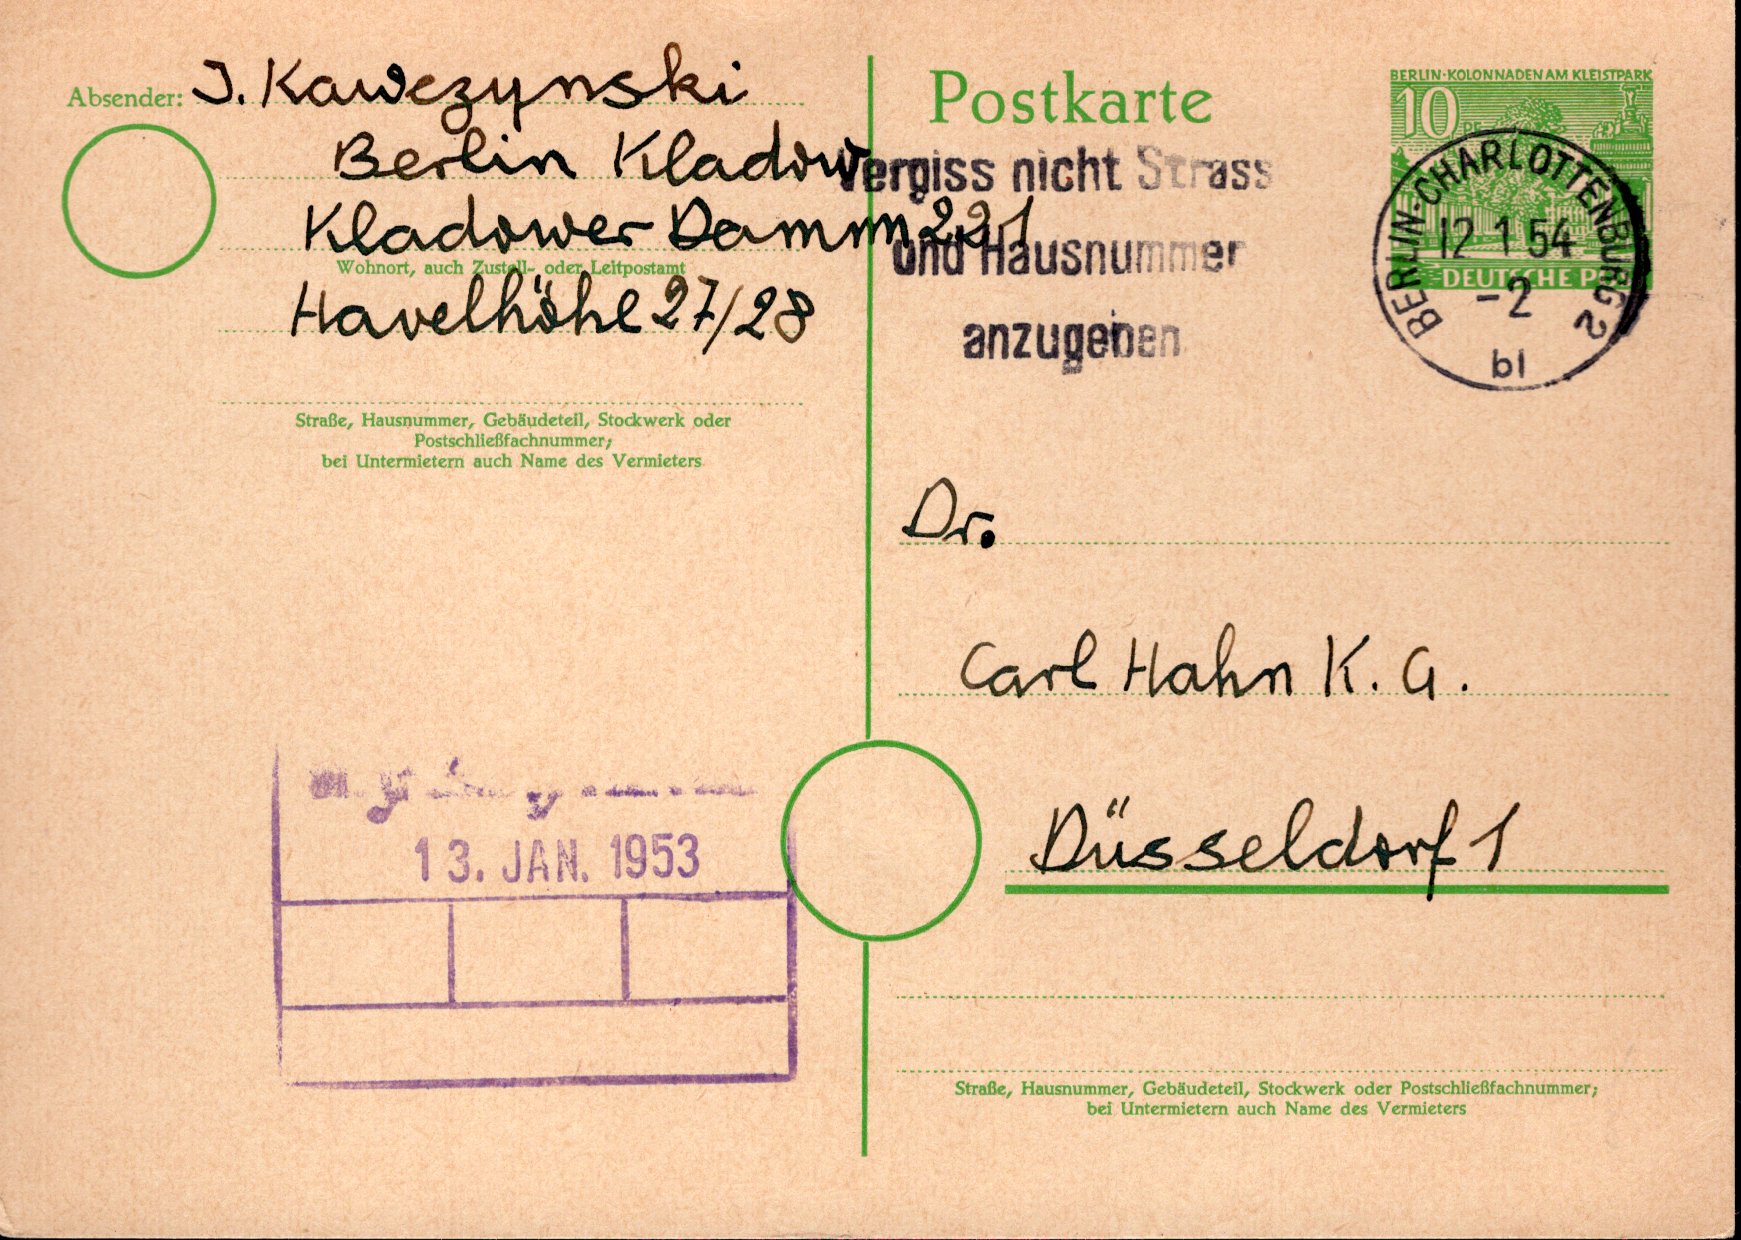 Absender: J. Kawczynski
Berlin Kladow
Kladower Damm 221
Wohnort, auch Zustell- oder Leitpostamt
Havelhöhe 27/28
Straße, Hausnummer, Gebäudeteil, Stockwerk oder
Postschließfachnummer;
bei Untermietern auch Name des Vermieters
13. JAN. 1953
Postkarte
Vergiss nicht Strass
und Hausnummer
anzugeben
BERLIN·KOLONNADEN AM KLEISTPARK
10
DEUTSCHE P
BERLIN-CHARLOTTENBURG 2
12 1 54
-2
bl
Dr.
Carl Hahn K. G.
Düsseldorf 1
Straße, Hausnummer, Gebäudeteil, Stockwerk oder Postschließfachnummer;
bei Untermietern auch Name des Vermieters